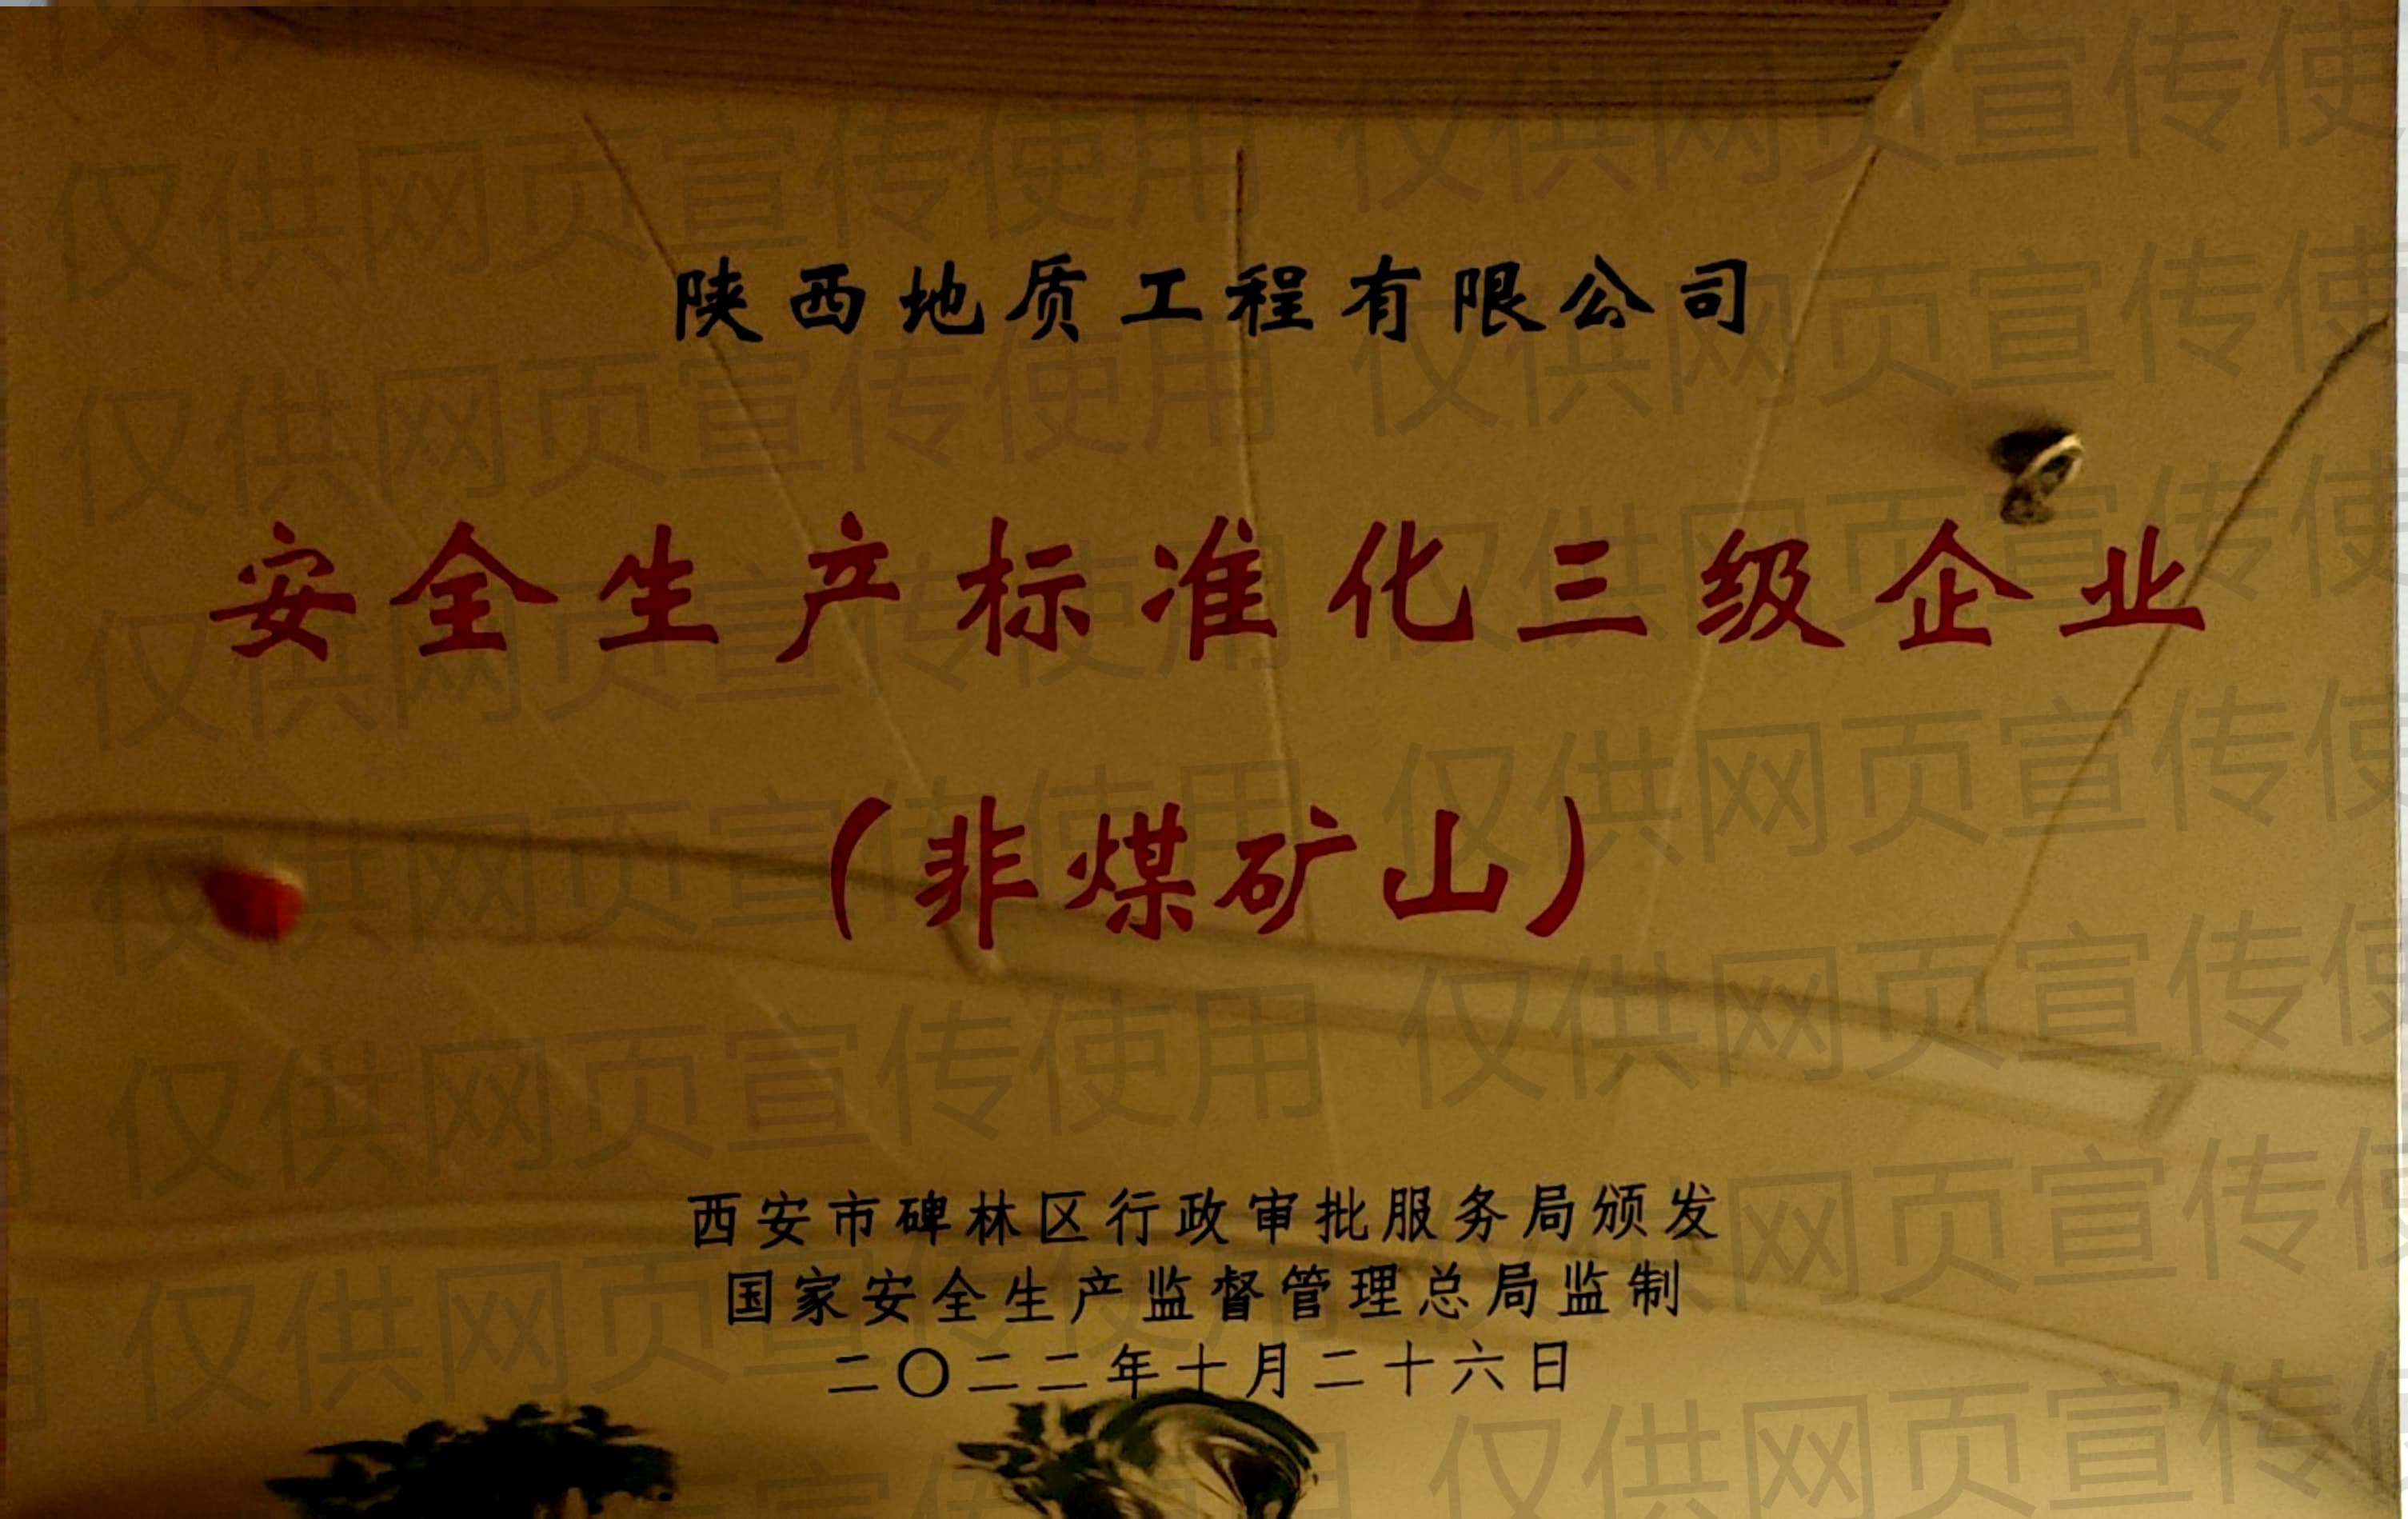 陕西地质工程有限公司
安全生产标准化三级企业
（非煤矿山）
西安市碑林区行政审批服务局颁发
国家安全生产监督管理总局监制
二〇二二年十月二十六日
仅供网页宣传使用